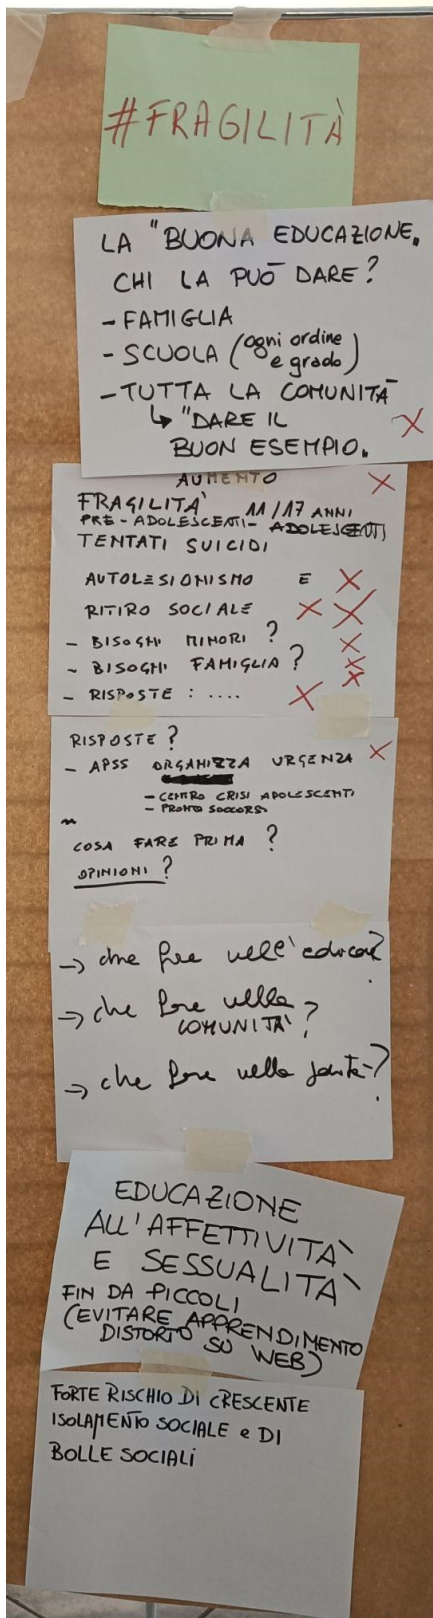 #FRAGILITÀ
LA "BUONA EDUCAZIONE"
CHI LA PUÒ DARE?
- FAMIGLIA
- SCUOLA (ogni ordine
e grado)
- TUTTA LA COMUNITÀ
↳ "DARE IL X
BUON ESEMPIO"
AUMENTO X
FRAGILITÀ 11/17 ANNI
PRE-ADOLESCENTI - ADOLESCENTI
TENTATI SUICIDI
AUTOLESIONISMO E X
RITIRO SOCIALE X X
- BISOGNI MINORI ? X
- BISOGNI FAMIGLIA ? X
- RISPOSTE : .... X X
RISPOSTE ?
- APSS ORGANIZZA URGENZA X
- CENTRO CRISI ADOLESCENTI
- PRONTO SOCCORSO
COSA FARE PRIMA ?
OPINIONI ?
→ che fare nell'educaz?
→ che fare nella
COMUNITÀ ?
→ che fare nella sanità?
EDUCAZIONE
ALL'AFFETTIVITÀ
E SESSUALITÀ
FIN DA PICCOLI
(EVITARE APPRENDIMENTO
DISTORTO SU WEB)
FORTE RISCHIO DI CRESCENTE
ISOLAMENTO SOCIALE e DI
BOLLE SOCIALI